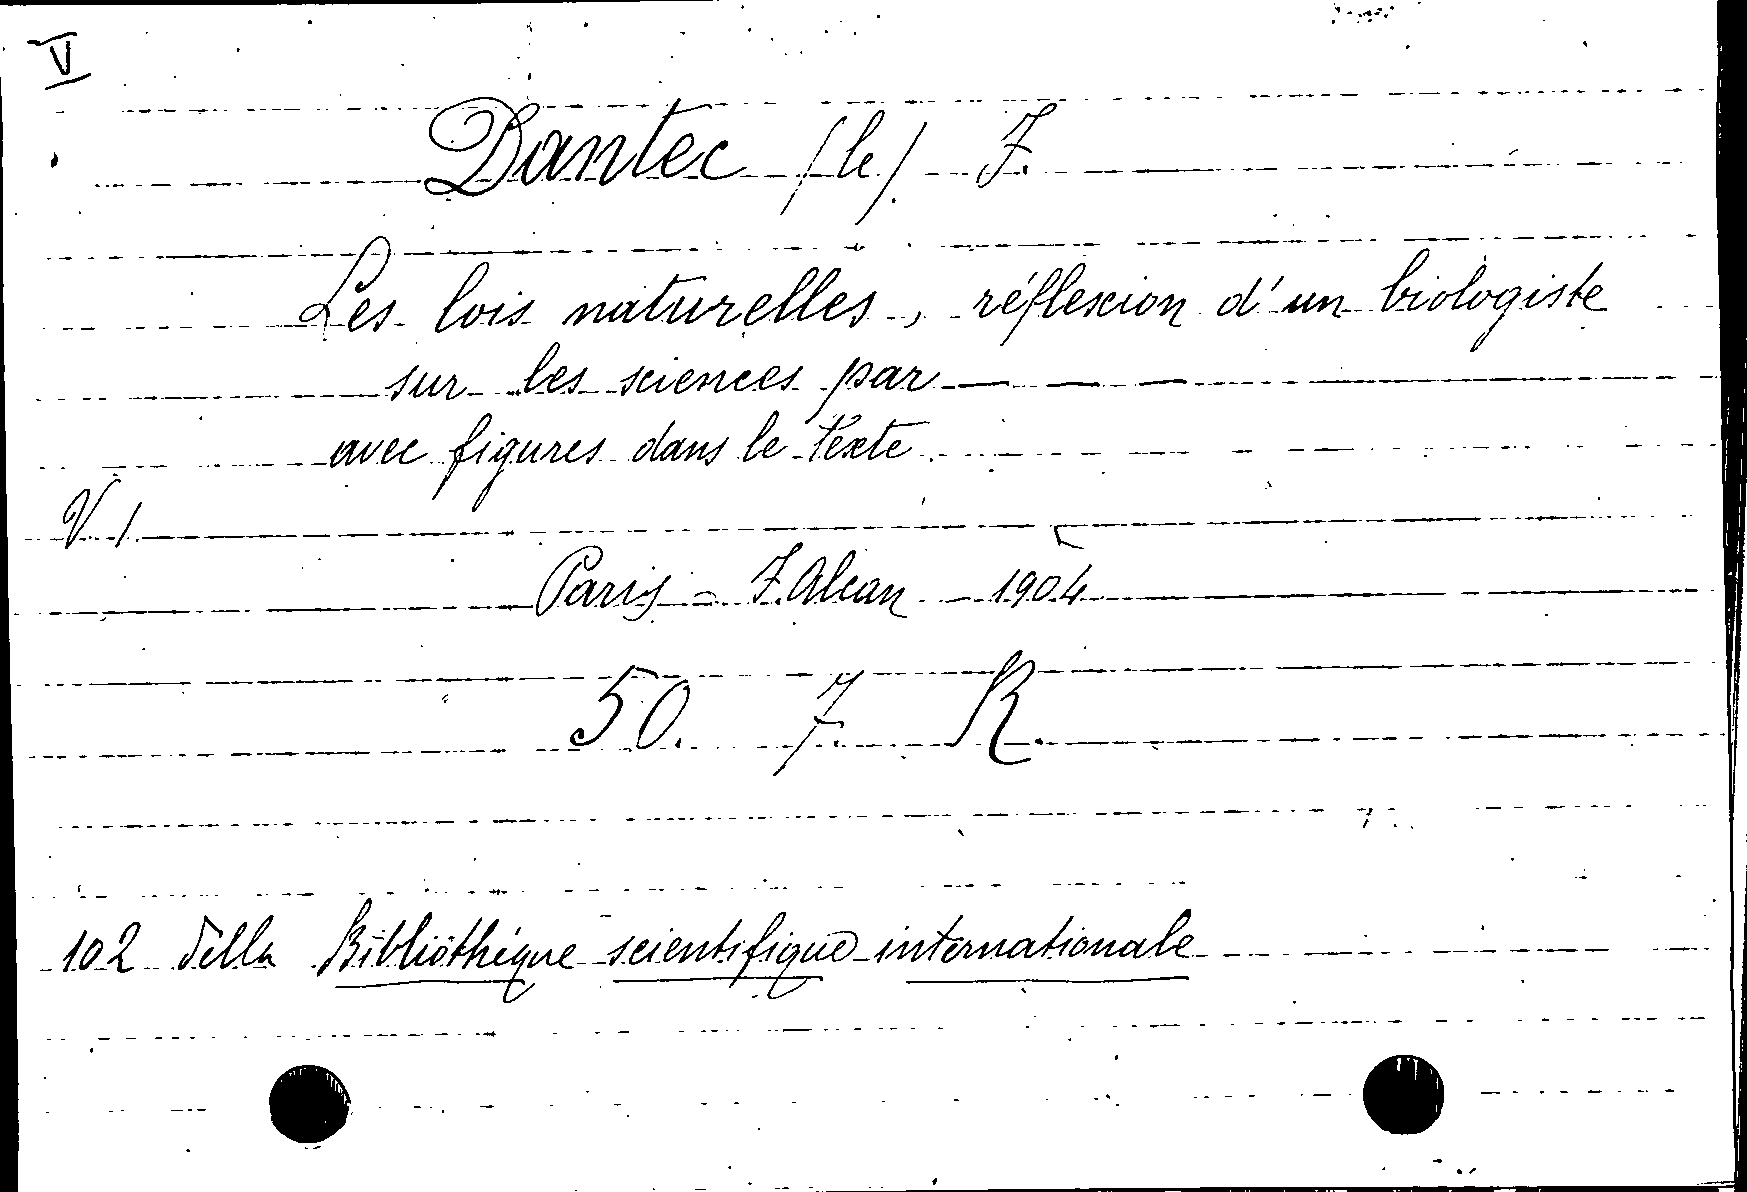 V
Dantec (le) F.
Les lois naturelles, réflexion d'un biologiste
sur les sciences par — — —
avec figures dans le texte
V. 1
Paris - F. Alcan - 1904
50. F. R.
102 della Bibliothéque scientifique internationale